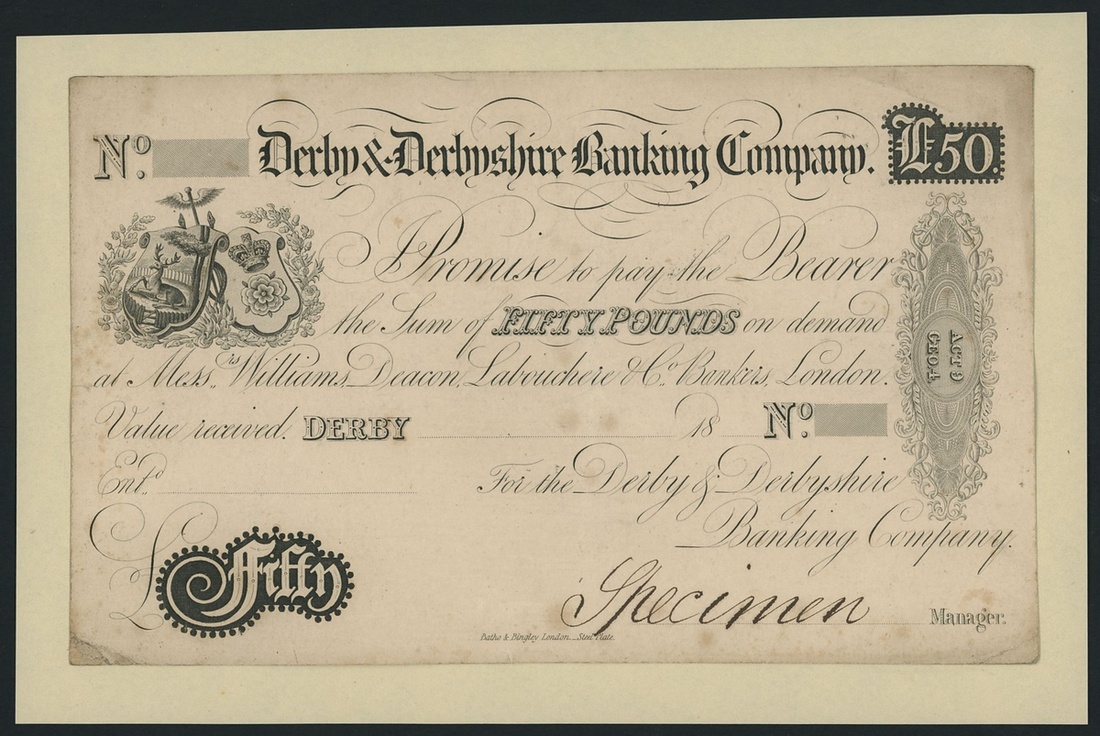 No. Derby & Derbyshire Banking Company. £50.
I Promise to pay the Bearer
the Sum of FIFTY POUNDS on demand
at Messrs. Williams, Deacon, Labouchere & Co. Bankers, London.
Value received. DERBY 18 No.
Entd.
For the Derby & Derbyshire
Banking Company.
£ Fifty
Specimen Manager.
Batho & Bingley London. Steel Plate.
ACT 9
GEO. 4